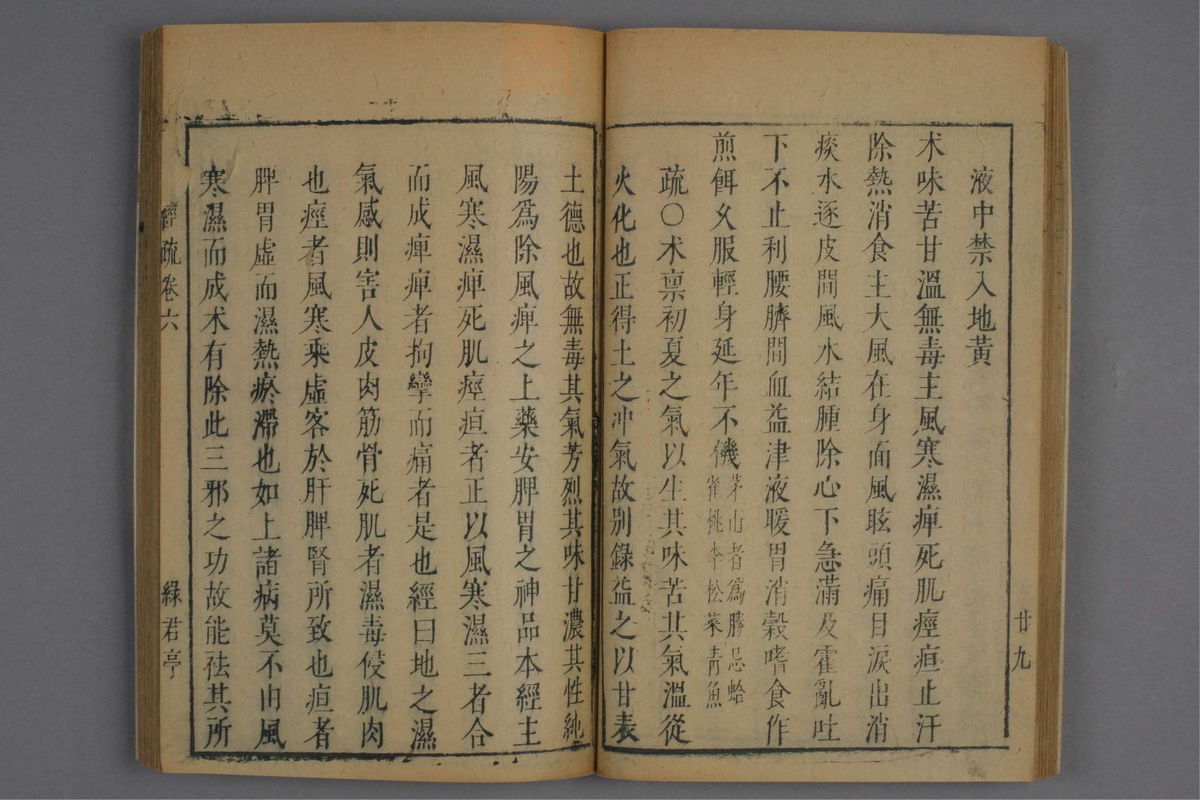 廿九
液中禁入地黃
术味苦甘溫無毒主風寒濕痺死肌痙疸止汗
除熱消食主大風在身面風眩頭痛目淚出消
痰水逐皮間風水結腫除心下急滿及霍亂吐
下不止利腰臍間血益津液暖胃消穀嗜食作
煎餌久服輕身延年不饑茅山者爲勝忌蛤
雀桃李松菜青魚
疏○术禀初夏之氣以生其味苦其氣溫從
火化也正得土之冲氣故別錄益之以甘表
土德也故無毒其氣芳烈其味甘濃其性純
陽爲除風痺之上藥安脾胃之神品本經主
風寒濕痺死肌痙疸者正以風寒濕三者合
而成痺痺者拘攣而痛者是也經曰地之濕
氣感則害人皮肉筋骨死肌者濕毒侵肌肉
也痙者風寒乘虛客於肝脾腎所致也疸者
脾胃虛而濕熱瘀滯也如上諸病莫不由風
寒濕而成术有除此三邪之功故能祛其所
經疏卷六
綠君亭